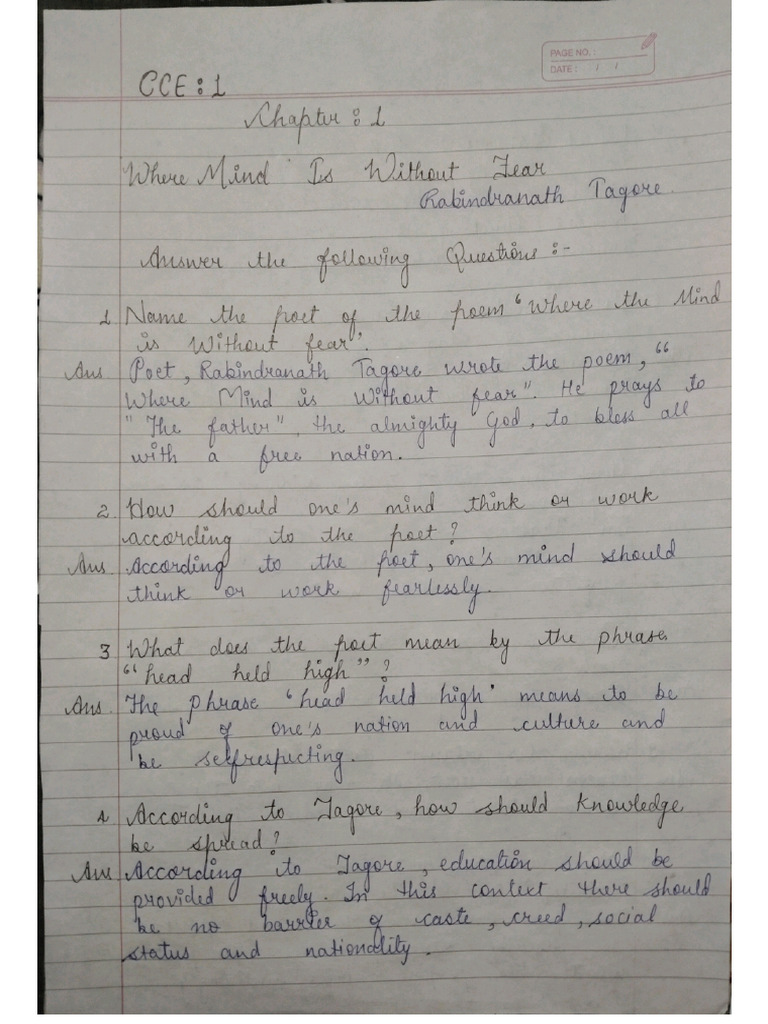 PAGE NO. :
DATE : / /
CCE : 1
Chapter : 1
Where Mind Is Without Fear
Rabindranath Tagore.
Answer the following Questions :-
1. Name the poet of the poem "Where the Mind
is Without fear".
Ans Poet, Rabindranath Tagore wrote the poem, "
Where Mind is Without fear". He prays to
"The father", the almighty God, to bless all
with a free nation.
2. How should one's mind think or work
according to the poet?
Ans. According to the poet, one's mind should
think or work fearlessly.
3 What does the poet mean by the phrase
"head held high"?
Ans. The Phrase 'head held high' means to be
proud of one's nation and culture and
be selfrespecting.
4. According to Tagore, how should knowledge
be spread?
Ans According to Tagore, education should be
provided freely. In this context there should
be no barrier of caste, creed, social
status and nationality.